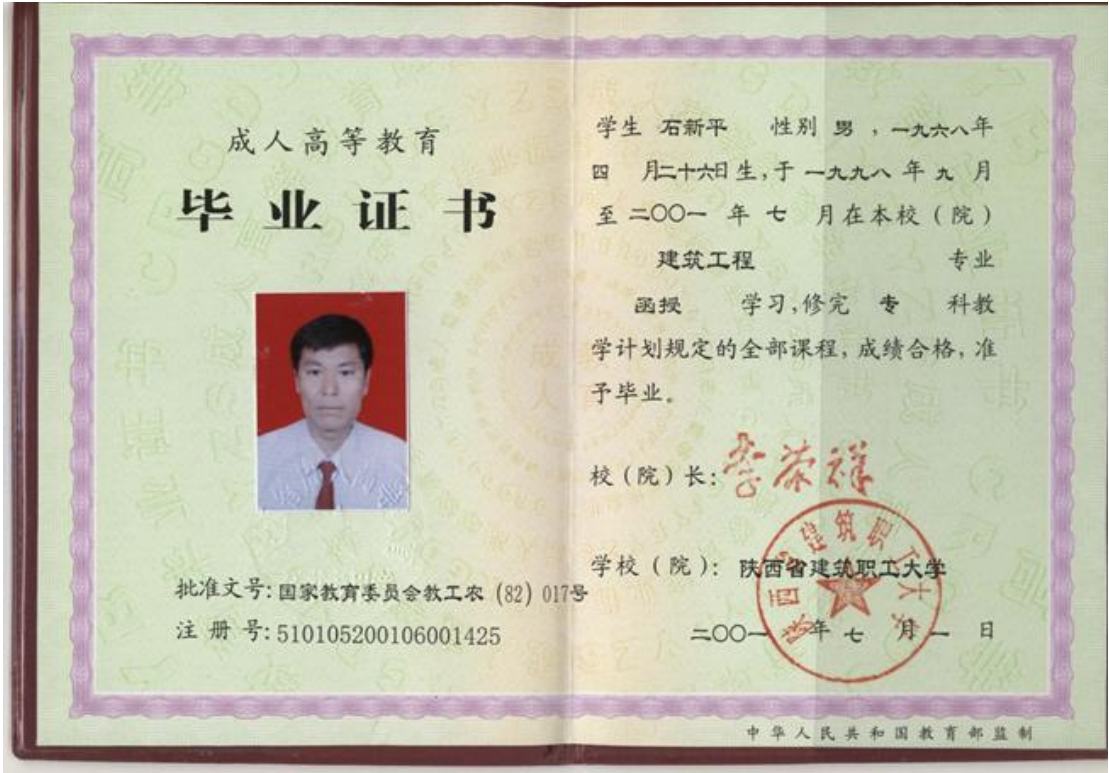 成人高等教育
毕业证书
批准文号:国家教育委员会教工农(82)017号
注册号:510105200106001425
学生 石新平 性别 男 ,一九六八年
四 月二十六日生,于一九九八年九月
至二〇〇一年七月在本校(院)
建筑工程 专业
函授 学习,修完 专 科教
学计划规定的全部课程,成绩合格,准
予毕业。
校(院)长:李荣祥
学校(院):陕西省建筑职工大学
陕西省建筑职工大学
二〇〇一年七月一日
中华人民共和国教育部监制